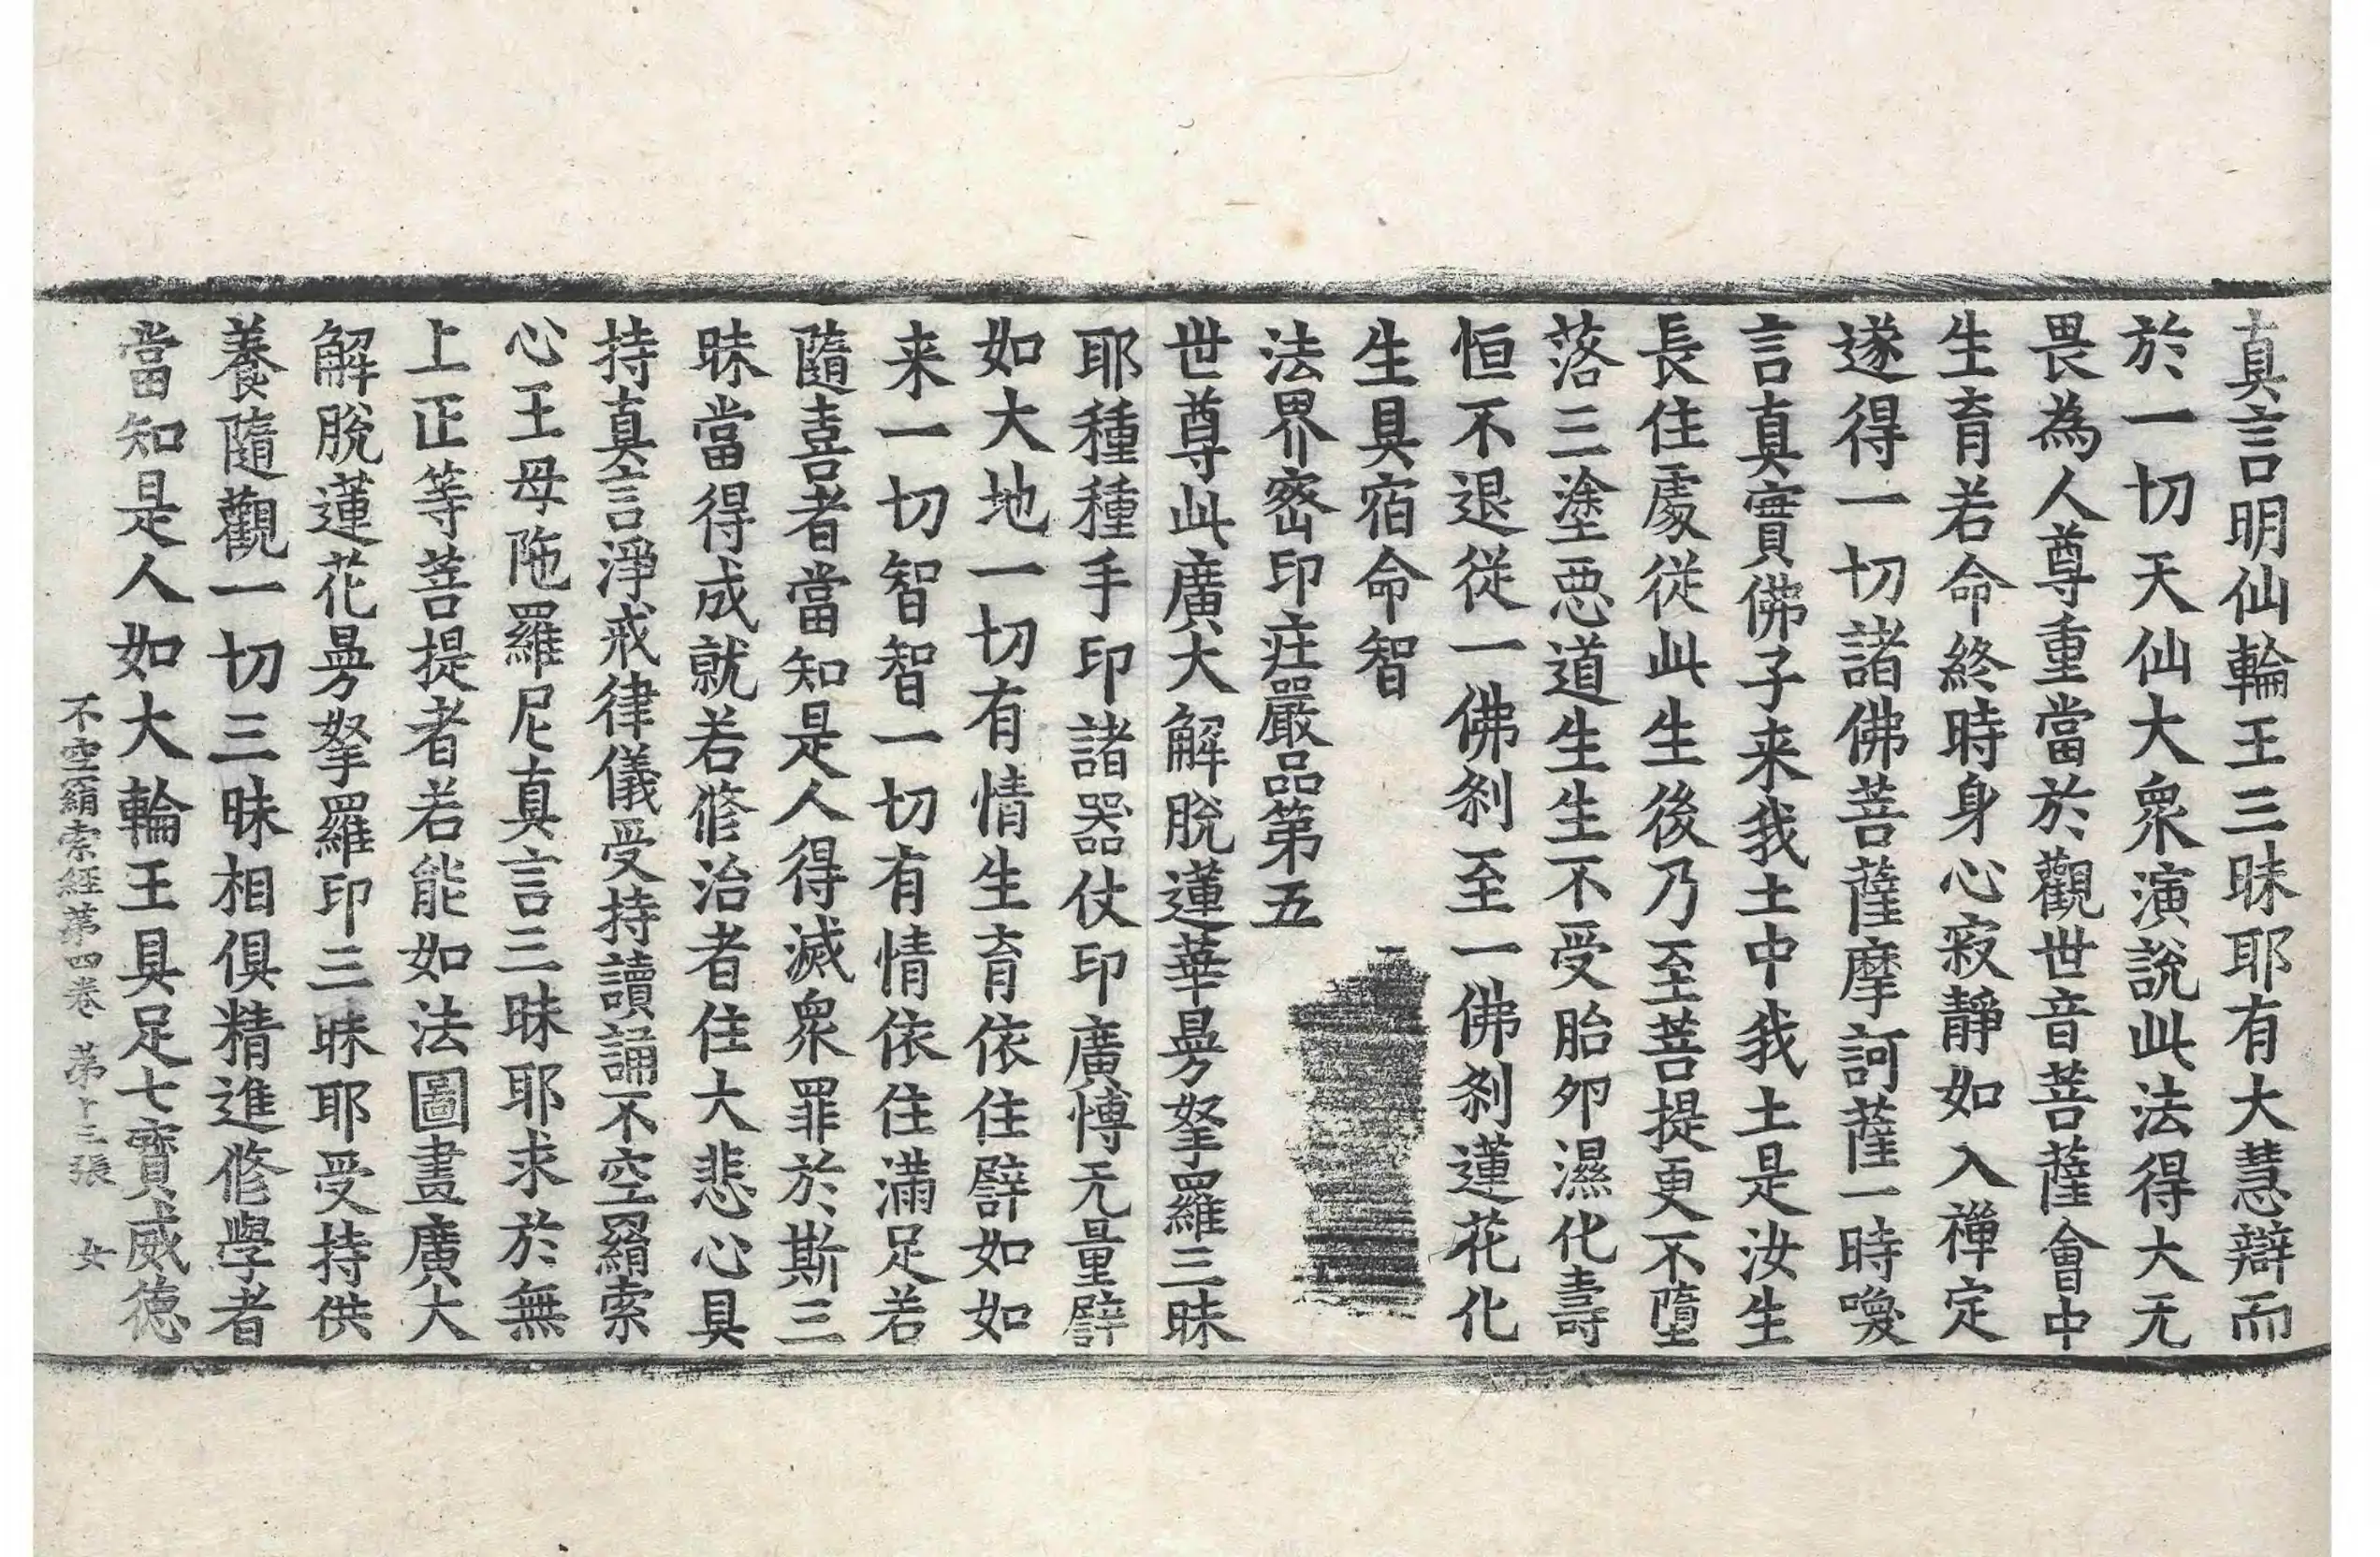 真言明仙輪王三昧耶有大慧辯而
於一切天仙大衆演說此法得大无
畏為人尊重當於觀世音菩薩會中
生育若命終時身心寂靜如入禪定
遂得一切諸佛菩薩摩訶薩一時喚
言真實佛子来我土中我土是汝生
長住處従此生後乃至菩提更不墮
落三塗惡道生生不受胎卵濕化壽
恒不退従一佛刹至一佛刹蓮花化
生具宿命智
法界密印莊嚴品第五
世尊此廣大解脫蓮華曼拏羅三昧
耶種種手印諸器仗印廣博无量譬
如大地一切有情生育依住譬如如
来一切智智一切有情依住滿足若
隨喜者當知是人得滅衆罪於斯三
昧當得成就若修治者住大悲心具
持真言淨戒律儀受持讀誦不空羂索
心王母陁羅尼真言三昧耶求於無
上正等菩提者若能如法圖畫廣大
解脫蓮花曼拏羅印三昧耶受持供
養隨觀一切三昧相俱精進修學者
當知是人如大輪王具足七寶威德
不空羂索經第四卷 第十三張 女